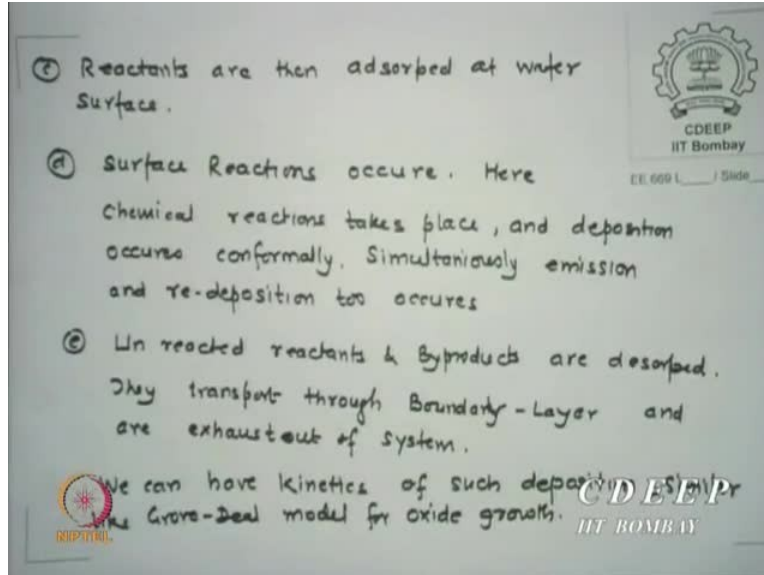 ⓒ Reactants are then adsorbed at wafer
surface.
CDEEP
IIT Bombay
EE 669 L____ / Slide__
ⓓ Surface Reactions occure. Here
Chemical reactions takes place, and deposition
occures conformally. Simultaniously emission
and re-deposition too occures
ⓔ Un reacted reactants & Byproducts are desorbed.
They transport through Boundary-Layer and
are exhaust out of system.
We can have kinetics of such deposition similar
like Grove-Deal model for oxide growth.
CDEEP
IIT BOMBAY
NPTEL